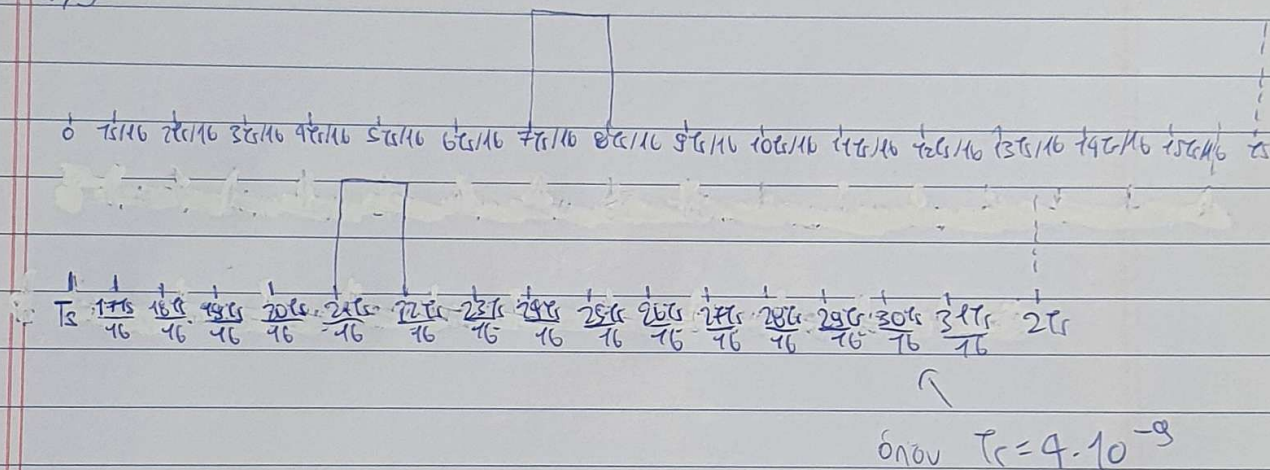 0 Ts/16 2Ts/16 3Ts/16 4Ts/16 5Ts/16 6Ts/16 7Ts/16 8Ts/16 9Ts/16 10Ts/16 11Ts/16 12Ts/16 13Ts/16 14Ts/16 15Ts/16 Ts
Ts 17Ts/16 18Ts/16 19Ts/16 20Ts/16 21Ts/16 22Ts/16 23Ts/16 24Ts/16 25Ts/16 26Ts/16 27Ts/16 28Ts/16 29Ts/16 30Ts/16 31Ts/16 2Ts
όπου Ts = 4·10⁻⁹